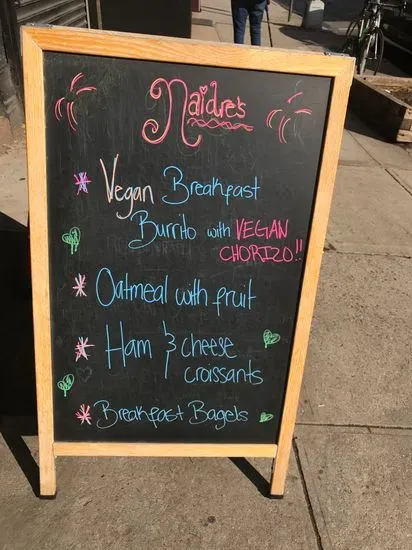 Naidre's
Vegan Breakfast
Burrito with VEGAN
CHORIZO!!
Oatmeal with fruit
Ham & cheese
croissants
Breakfast Bagels